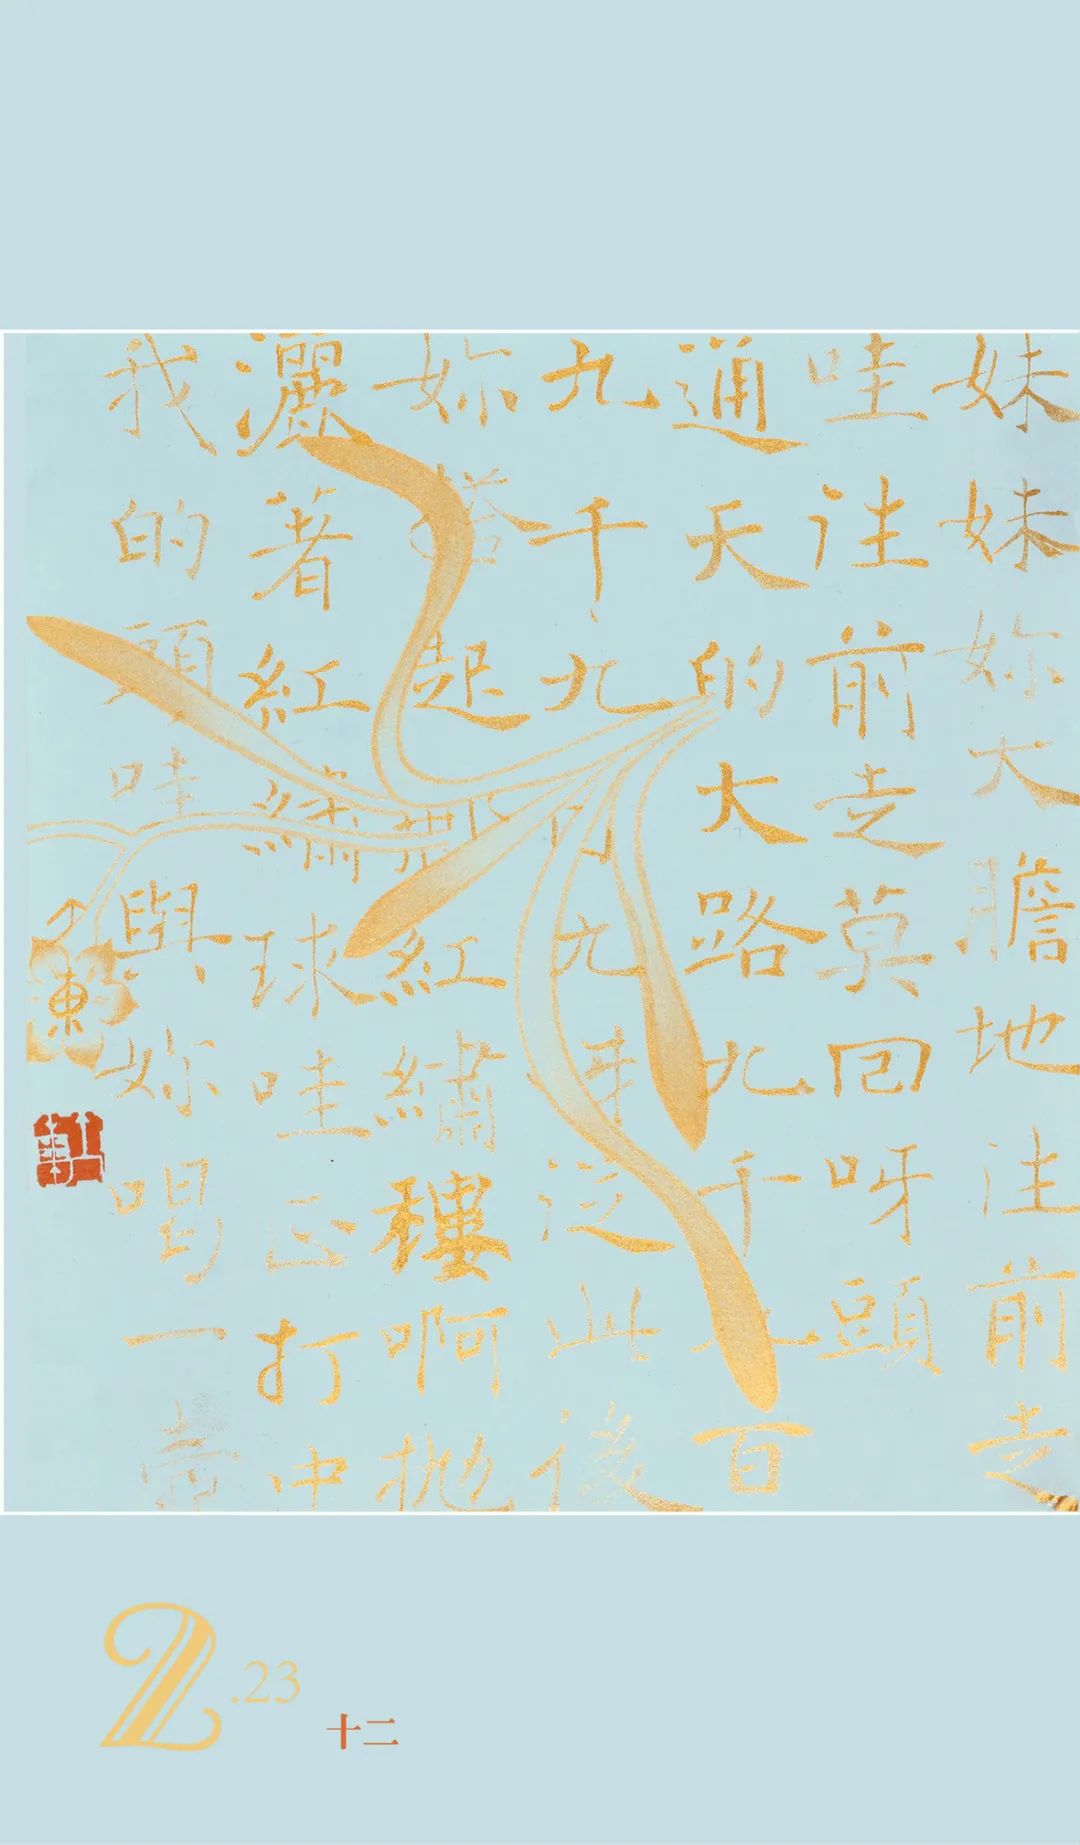 妹妹妳大膽地往前走
哇往前走莫回呀頭
通天的大路九千九百
九千九百九呀從此後
妳搭起那紅繡樓啊拋
灑著紅繡球哇正打中
我的頭哇與妳喝一壺
東
2.23
十二